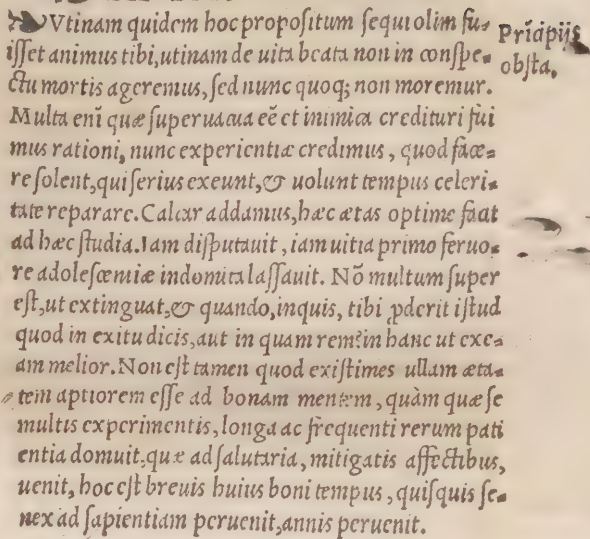 Vtinam quidem hoc propoſitum ſequi olim fu⸗
iſſet animus tibi, utinam de uita beata non in conſpe⸗
ctu mortis ageremus, ſed nunc quoq; non moremur.
Multa enī quæ ſuperuacua eē et inimica credituri fui
mus rationi, nunc experientiæ credimus, quod face⸗
re ſolent, qui ſerius exeunt, & uolunt tempus celeri⸗
tate reparare. Calcar addamus, hæc ætas optime facit
ad hæc ſtudia. Iam diſputauit, iam uitia primo feruo⸗
re adoleſcentiæ indomita laſſauit. Nō multum ſuper
eſt, ut extinguat, & quando, inquis, tibi ꝓderit iſtud
quod in exitu dicis, aut in quam rem? in hanc ut exe⸗
am melior. Non eſt tamen quod exiſtimes ullam æta⸗
tem aptiorem eſſe ad bonam mentem, quàm quæ ſe
multis experimentis, longa ac frequenti rerum pati
entia domuit, quæ ad ſalutaria, mitigatis affectibus,
uenit, hoc eſt breuis huius boni tempus, quiſquis ſe⸗
nex ad ſapientiam peruenit, annis peruenit.
Prīcipijs
obſta.